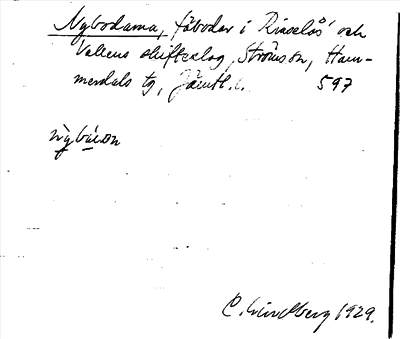 Nybodarna, fäbodar i Risselås och
Vallens skifteslag, Ströms sn, Ham-
merdals tg, Jämtl. l. 597
C. Lindberg 1929.